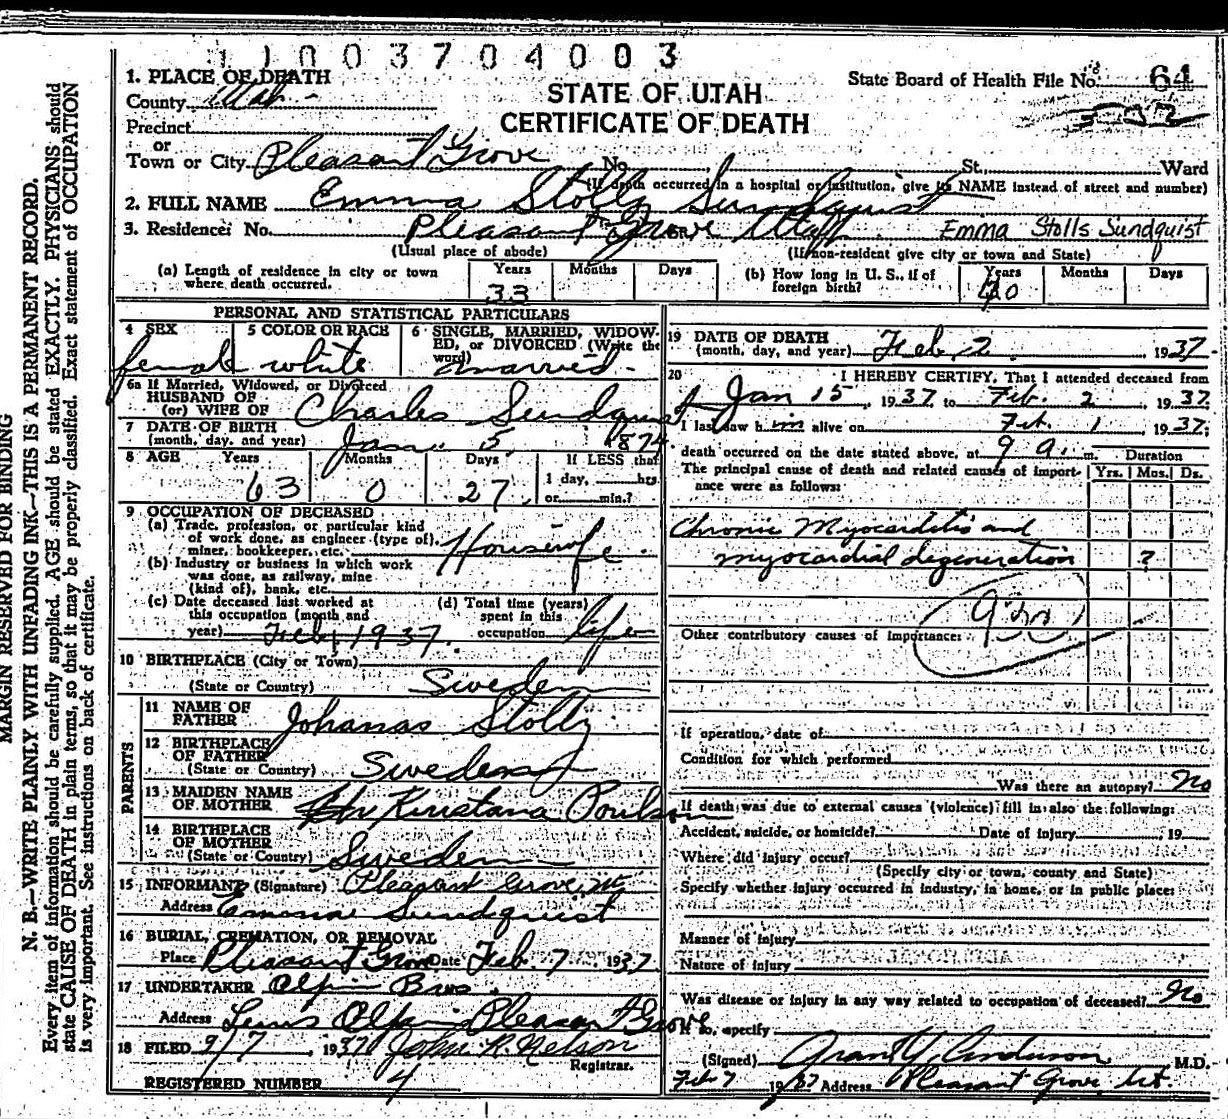 11003704003
1. PLACE OF DEATH
County Utah
State Board of Health File No. 64
STATE OF UTAH
CERTIFICATE OF DEATH
Precinct
or
Town or City Pleasant Grove No. St., Ward
(If death occurred in a hospital or institution, give its NAME instead of street and number)
2. FULL NAME Emma Stolls Sundquist
3. Residence: No. Pleasant Grove Utah Emma Stolls Sundquist
(Usual place of abode) (If non-resident give city or town and State)
(a) Length of residence in city or town where death occurred. Years 33 Months Days
(b) How long in U. S., if of foreign birth? Years 40 Months Days
PERSONAL AND STATISTICAL PARTICULARS
4 SEX female
5 COLOR OR RACE white
6 SINGLE, MARRIED, WIDOWED, or DIVORCED (Write the word) married
6a If Married, Widowed, or Divorced
HUSBAND OF
(or) WIFE OF Charles Sundquist
7 DATE OF BIRTH
(month, day, and year) Jan. 5 1874
8 AGE Years 63 Months 0 Days 27 If LESS than 1 day, hrs. or min.?
9 OCCUPATION OF DECEASED
(a) Trade, profession, or particular kind of work done, as engineer (type of), miner, bookkeeper, etc. Housewife
(b) Industry or business in which work was done, as railway, mine (kind of), bank, etc.
(c) Date deceased last worked at this occupation (month and year) Feb 1 1937.
(d) Total time (years) spent in this occupation life
10 BIRTHPLACE (City or Town)
(State or Country) Sweden
PARENTS
11 NAME OF FATHER Johanas Stolls
12 BIRTHPLACE OF FATHER
(State or Country) Sweden
13 MAIDEN NAME OF MOTHER Poulson
14 BIRTHPLACE OF MOTHER
(State or Country) Sweden
15 INFORMANT (Signature) Pleasant Grove
Address Sundquist
16 BURIAL, CREMATION, OR REMOVAL
Place Pleasant Grove Date Feb. 7 1937
17 UNDERTAKER Olpin Bros.
Address Olpin Pleasant Grove
18 FILED 2/7, 1937 John R. Nelson
Registrar.
REGISTERED NUMBER 4
19 DATE OF DEATH
(month, day, and year) Feb 2, 1937
20 I HEREBY CERTIFY, That I attended deceased from
Jan 15, 1937, to Feb. 2, 1937
I last saw him alive on Feb. 1, 1937;
death occurred on the date stated above, at 9 a. m. Duration
The principal cause of death and related causes of importance were as follows: Yrs. Mos. Ds.
Chronic Myocarditis and
myocardial degeneration ?
Other contributory causes of importance:
If operation, date of
Condition for which performed
Was there an autopsy? No
If death was due to external causes (violence) fill in also the following:
Accident, suicide, or homicide? Date of injury, 19
Where did injury occur?
(Specify city or town, county and State)
Specify whether injury occurred in industry, in home, or in public place:
Manner of injury
Nature of injury
Was disease or injury in any way related to occupation of deceased? No
If so, specify
(Signed) Grant Y. Anderson, M.D.
Feb 7 1937 Address Pleasant Grove, Ut
MARGIN RESERVED FOR BINDING
N. B.—WRITE PLAINLY WITH UNFADING INK—THIS IS A PERMANENT RECORD.
Every item of information should be carefully supplied. AGE should be stated EXACTLY. PHYSICIANS should
state CAUSE OF DEATH in plain terms, so that it may be properly classified. Exact statement of OCCUPATION
is very important. See instructions on back of certificate.